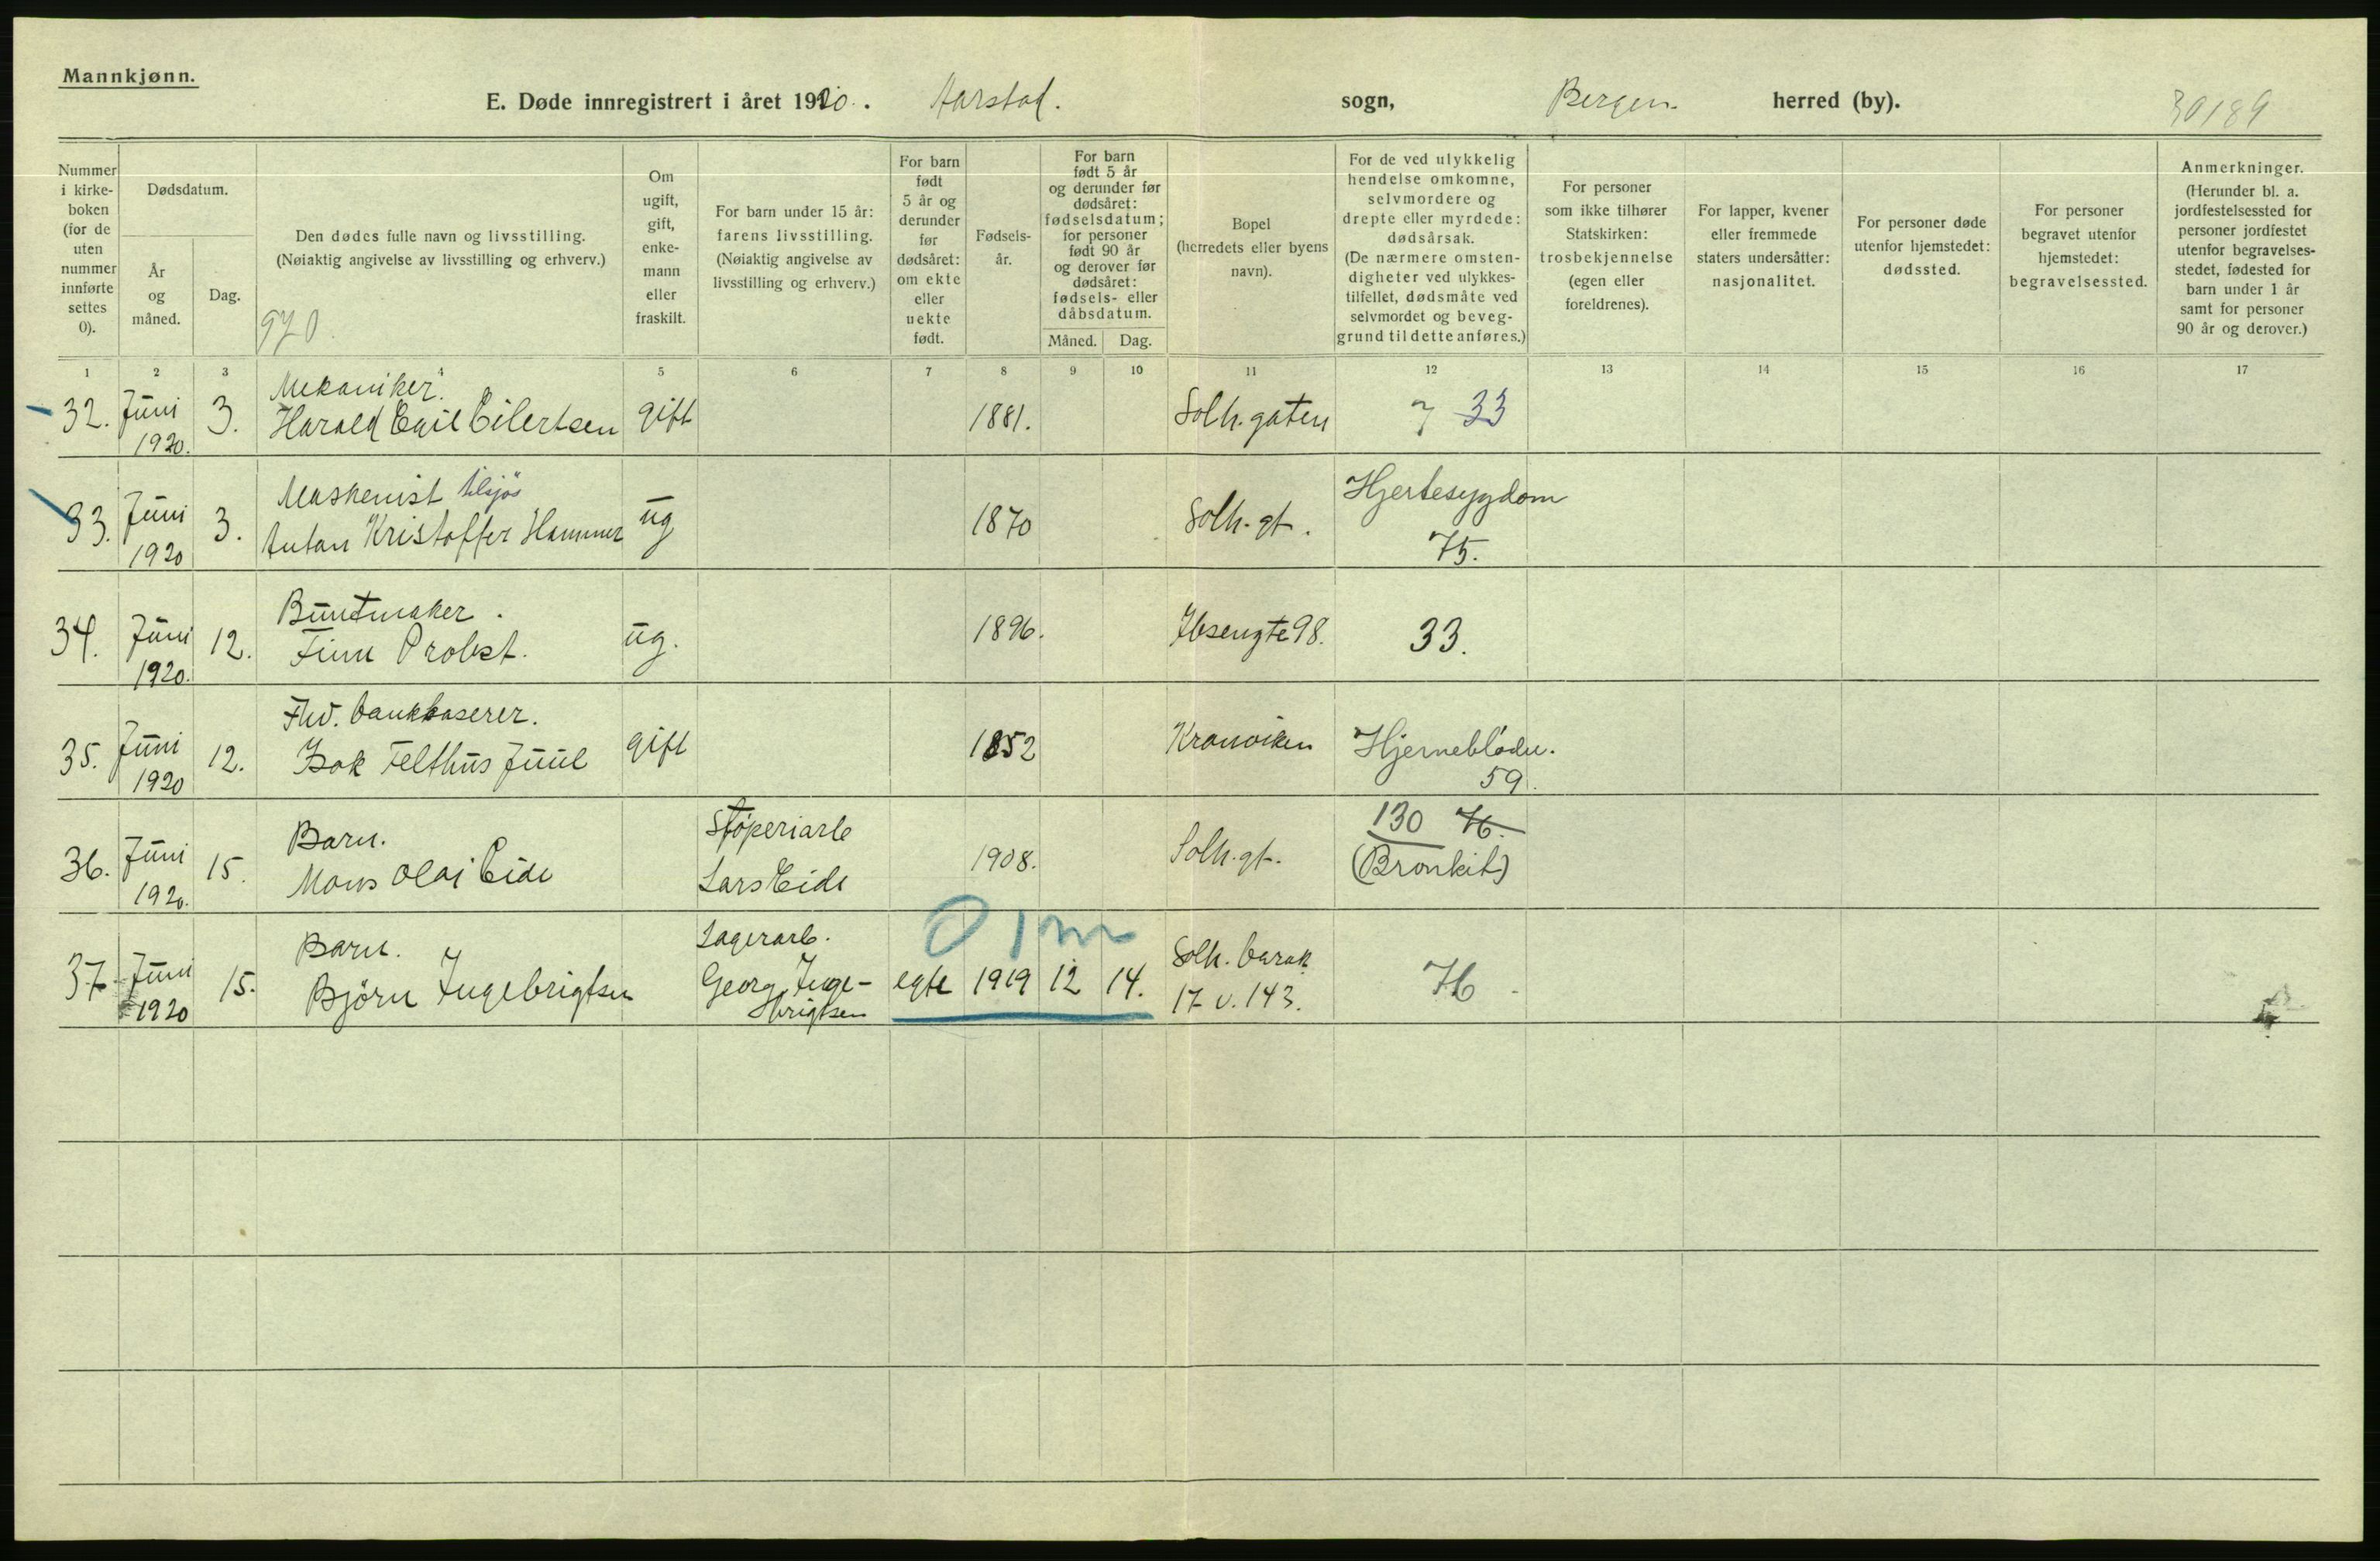 Mannkjønn.
E. Døde innregistrert i året 1920. Aarstad. sogn, Bergen. herred (by). 30189
Nummer i kirke-boken (for de uten nummer innførte settes 0).
Dødsdatum.
År og måned.
Dag.
Den dødes fulle navn og livsstilling.
(Nøiaktig angivelse av livsstilling og erhverv.)
970.
Om ugift, gift, enke-mann eller fraskilt.
For barn under 15 år: farens livsstilling. (Nøiaktig angivelse av livsstilling og erhverv.)
For barn født 5 år og derunder før dødsåret: om ekte eller uekte født.
Fødsels-år.
For barn født 5 år og derunder før dødsåret: fødselsdatum; for personer født 90 år og derover før dødsåret: fødsels- eller dåbsdatum.
Måned. Dag.
Bopel (herredets eller byens navn).
For de ved ulykkelig hendelse omkomne, selvmordere og drepte eller myrdede: dødsårsak. (De nærmere omsten-digheter ved ulykkes-tilfellet, dødsmåte ved selvmordet og beveg-grund til dette anføres.)
For personer som ikke tilhører Statskirken: trosbekjennelse (egen eller foreldrenes).
For lapper, kvener eller fremmede staters undersåtter: nasjonalitet.
For personer døde utenfor hjemstedet: dødssted.
For personer begravet utenfor hjemstedet: begravelsessted.
Anmerkninger. (Herunder bl. a. jordfestelsessted for personer jordfestet utenfor begravelses-stedet, fødested for barn under 1 år samt for personer 90 år og derover.)
1 2 3 4 5 6 7 8 9 10 11 12 13 14 15 16 17
Mekaniker.
32. Juni 3. Harald Emil Eilertsen gift 1881. Solh. gaten 7 33
1920.
Maskenist tilsjös Hjertesygdom
33. Juni 3. Anton Kristoffer Hammer ug 1870 Solh. gt.
1920 75.
Buntmaker.
34. Juni 12. Finn Probst. ug. 1896. Ibsengte 98. 33.
1920.
Fhv. bankkaserer.
35. Juni 12. Isak Felthus Juul gift 1852 Kronviken Hjerneblødn.
1920 59.
Barn. Støperiarb 130 76.
36. Juni 15. Mons Olai Eide Lars Eide 1908. Solh. gt. (Bronkit)
1920.
Barn. Lagerarb. 0 1 m Solh. barak
37. Juni 15. Björn Ingebrigtsen Georg Inge- egte 1919 12 14. 17 v. 143. 76
1920 brigtsen